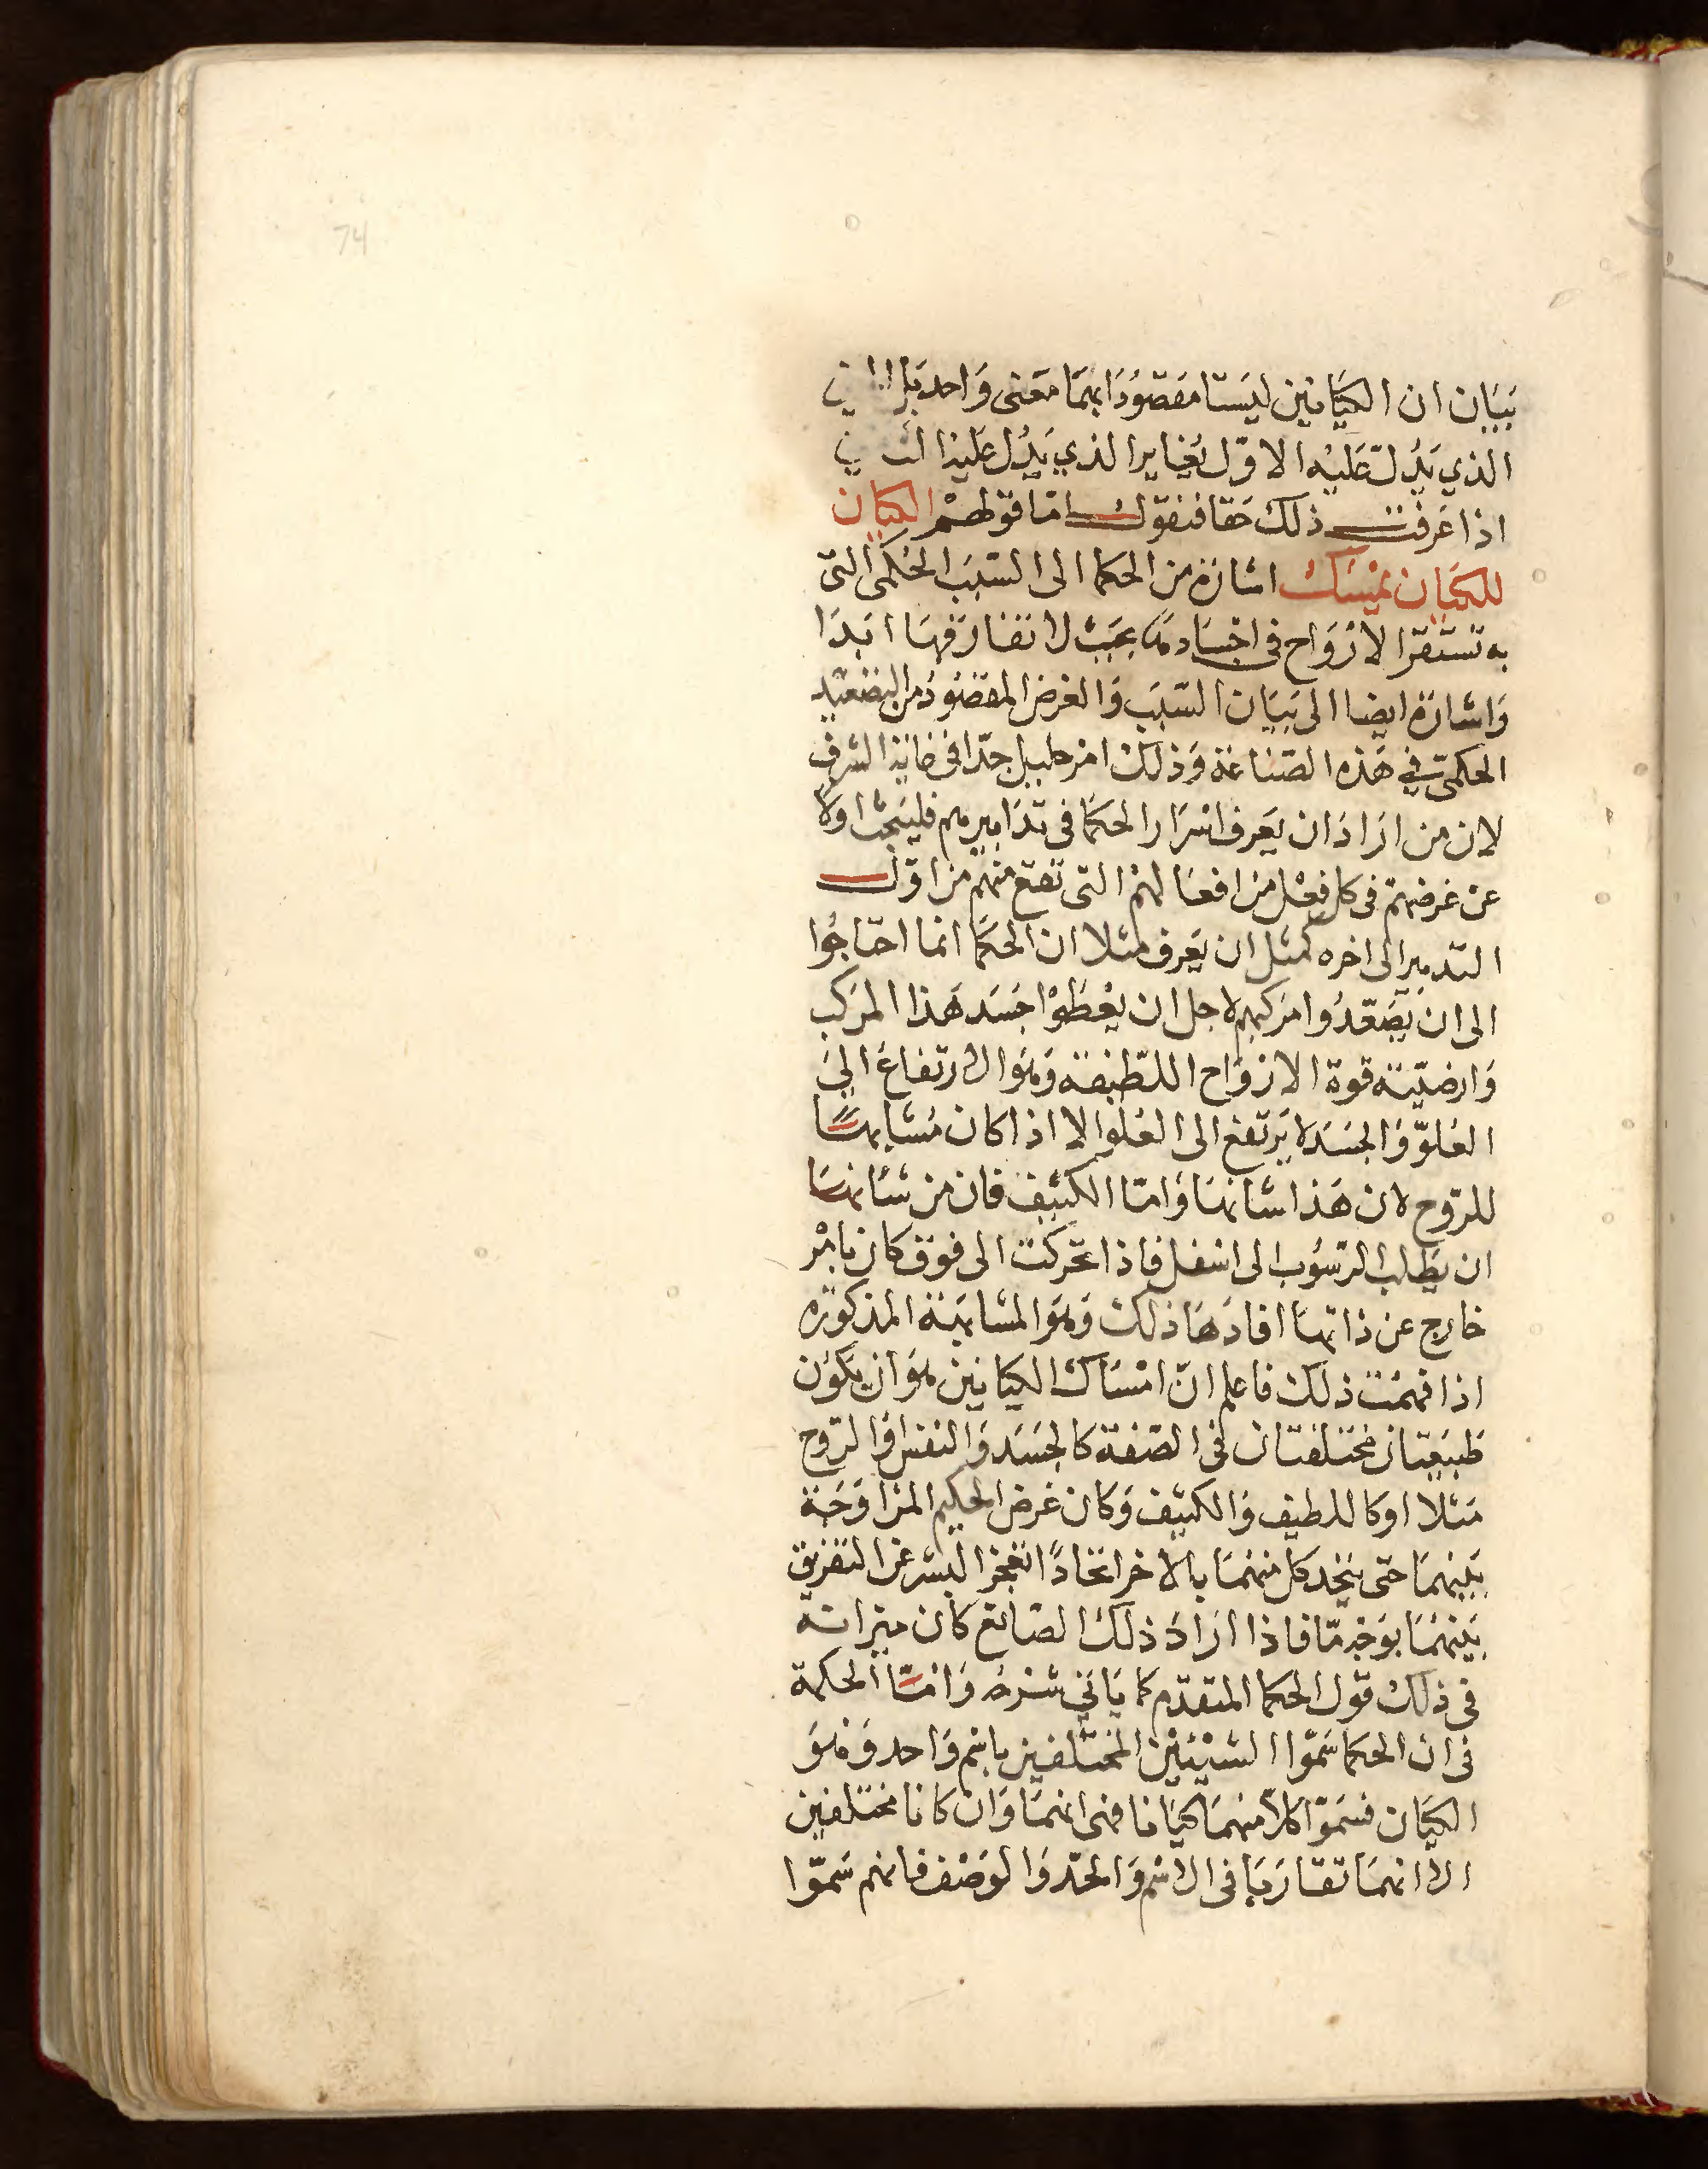 74
ببيان ان الكيانين ليستا مقصودا بهما معنى واحد بل
الذي يدل عليه الاول يغاير الذي يدل عليه
اذا عرفت ذلك حقا فنقول اما قولهم الكيان
للكيان يمسك اشارة من الحكما الى السبب الحكمى التى
به تستقر الارواح فى اجسادها بحيث لا تفارقها ابدا
واشارة ايضا الى بيان السبب والغرض المقصود من التصعيد
الحكمى في هذه الصناعة وذلك امر جليل جدا فى غاية الشرف
لان من اراد ان يعرف اسرار الحكما فى تدابيرهم فليبحث اولا
عن غرضهم فى كل فعل من افعالهم التى تقع منهم من اول
التدبير الى اخره كمثل ان يعرف مثلا ان الحكما انما احتاجوا
الى ان يصعدوا مركبهم لاجل ان يعطوا جسد هذا المركب
وارضيته قوة الارواح اللطيفة وهو الارتفاع الى
العلو والجسد لا يرتفع الى العلو الا اذا كان مشابها
للروح لان هذا شانها واما الكثيف فان من شانها
ان يطلب الرسوب الى اسفل فاذا تحركت الى فوق كان بامر
خارج عن ذاتها افادها ذلك وهو المشابهة المذكوره
اذا فهمت ذلك فاعلم ان امساك الكيانين هو ان يكون
طبيعتان مختلفتان فى الصفة كالجسد والنفس او الروح
مثلا او كاللطيف والكثيف وكان غرض الحكيم المزاوجة
بينهما حتى يتحد كل منهما بالاخر اتحادًا تعجز البشر عن التفريق
بينهما بوجه ما فاذا اراد ذلك الصانع كان ميزانه
فى ذلك قول الحكما المتقدم كما ياتى شرحه واما الحكمة
فى ان الحكما سموا الشيئين المختلفين باسم واحد وهو
الكيان فسموا كلا منهما كيانا فهى انهما وان كانا مختلفين
الا انهما تقاربا فى الاسم والحد والوصف فانهم سموا